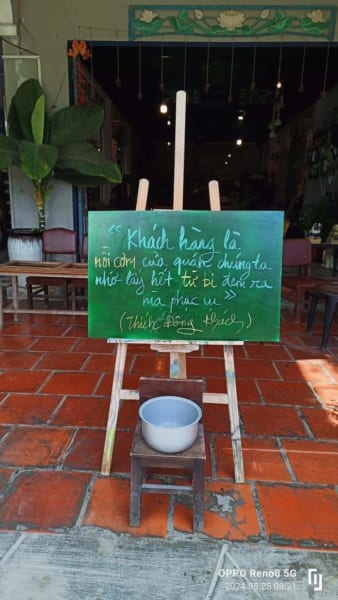 “Khách hàng là
nồi cơm của quán chúng ta
nhớ lấy hết từ bi đem ra
mà phục vụ »
(Thích Đông Khách)
OPPO Reno8 5G
2024.05.25 09:21